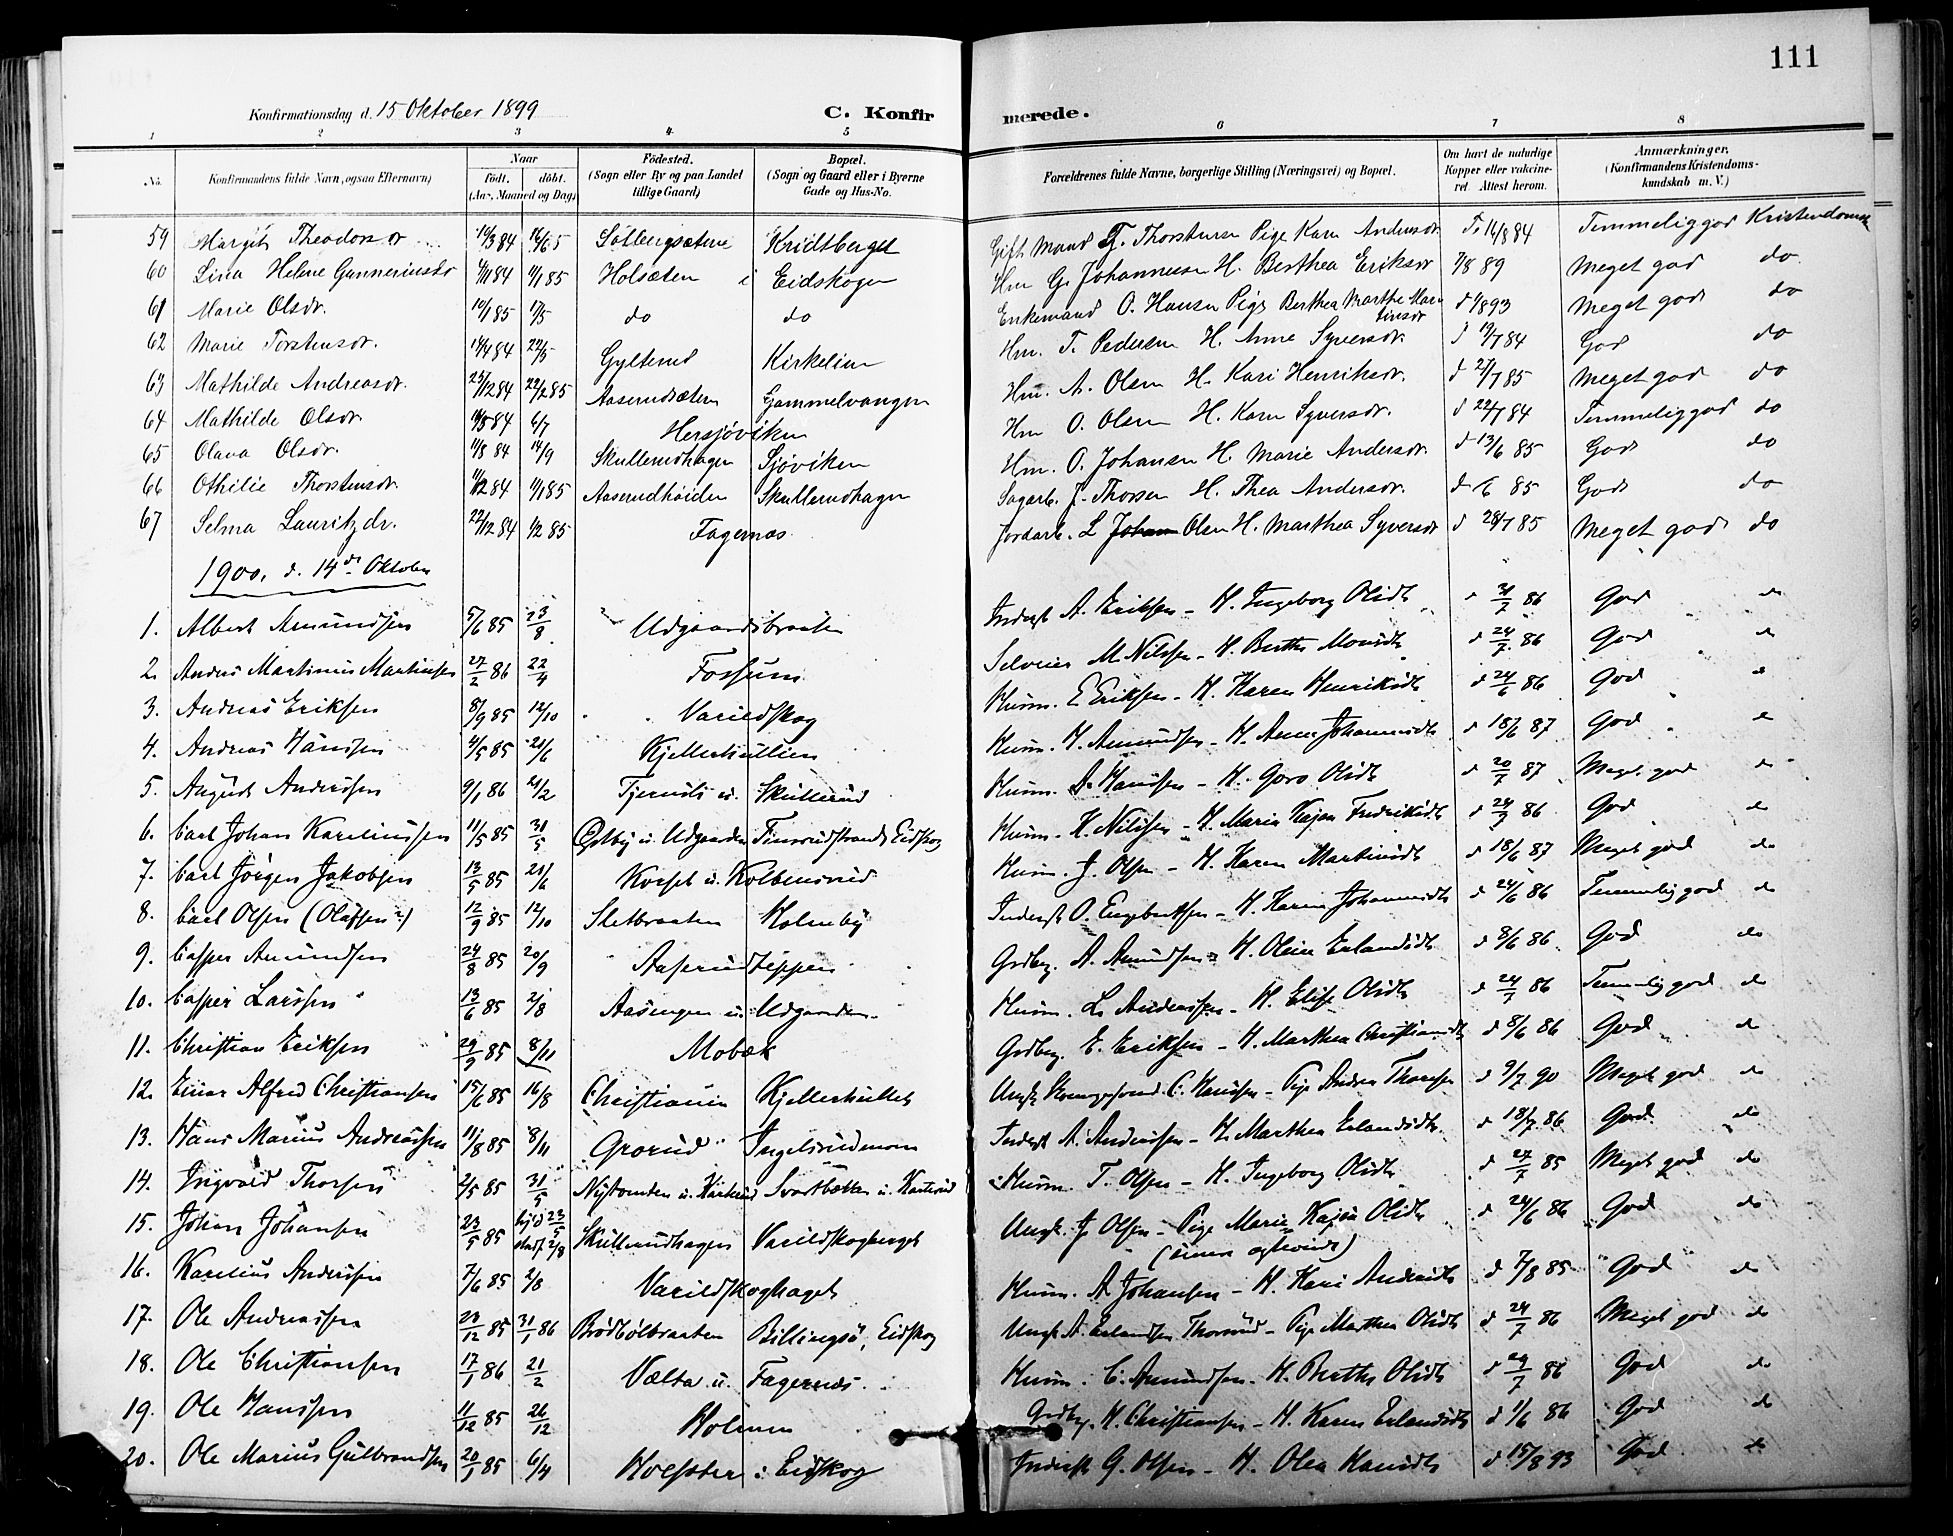 111
Konfirmationsdag d. 15 Oktober 1899 C. Konfir merede.
1 2 3 4 5 6 7 8
No. Konfirmandens fulde Navn, ogsaa Efternavn) Naar født. døbt. (Aar, Maaned og Dag) Fødested. (Sogn eller By og paa Landet tillige Gaard) Bopæl. (Sogn og Gaard eller i Byerne Gade og Hus-No. Forældrenes fulde Navne, borgerlige Stilling (Næringsvei) og Bopæl. Om havt de naturlige Kopper eller vaccineret. Attest herom. Anmærkninger. (Konfirmandens Kristendomskundskab m. V.)
59 Margit Theodorsdr 84 Solbergsæteren Kridtberget Gift Mand T. Thorstensen Pige Karen Andersdr 84 Temmelig god Kristendomsk
60 Lina Helene Gunneriusdr 4/11 84 11/1 85 Holsæten i Eidskogen Hm G. Johannesen H. Berthea Eriksdr 7/8 89 Meget god do.
61 Marie Olsdr. 10/1 85 17/5 do do Enkemand O. Hansen Pige Berthea Marthe Martinsdr d 1/8 93 Meget god do
62 Marie Torstensdr. 14/4 84 22/5 Gylterud Kirkelien Hm. T. Pedersen H. Anne Syversdr. d 19/7 84 God do
63 Mathilde Andreasdr. 23/12 84 22/2 85 Aaserudsæteren Gammelvangen Hm. A. Olsen H. Kari Henriksdr. d 27/7 85 Meget god do
64 Mathilde Olsdr. 84 6/7 Hersjøviken Hm O. Olsen H. Karen Syversdr. d 22/7 84 Temmelig god do
65 Olava Olsdr. 11/8 84 14/9 Skullerudhagen Sjøviken Hm. O. Johansen H. Marie Andersdr. d 13/6 85 God do
66 Othilie Thorstensdr. 84 11/1 85 Aaserudhøiden Skullerudhagen Sagarb. J. Thorsen H. Thea Andersdr. d 85 God do
67 Selma Lauritzdr. 22/12 84 1/2 85 Fagernæs Jordarb. L Johan Olsen H. Marthea Syversdr d 28/7 85 Meget god do
1900, d. 14de Oktober
1. Albert Amundsen 5/6 85 23/8 Udgaardsbraaten Inderst A. Eriksen - H. Ingeborg Olsdt d 21/7 86 God do
2. Anders Martinius Martinsen 27/2 86 22/4 Fossum Selveier M. Nilssen - H. Berthe d 24/7 86 God do
3. Andreas Eriksen 8/9 85 12/10 Varildskog Husm. E Eriksen - H. Karen Henriksdt d 24/6 86 God do
4. Andreas Hanssen 4/5 85 21/6 Kjellerhullien Husm. H. Amundsen - H. Anne Johannesdt d 18/6 87 God do
5. August Andersen 9/1 86 21/2 Tjernsli u. Skullerud Husm. A. Hanssen - H. Goro Olsdt d 20/7 87 Meget god do
6. Carl Johan Kareliussen 11/5 85 31/5 Østby u. Udgaarden Finsrudstrand, Eidskog Husm. K. Nilssen - H. Maria Kajsa Fredriksdt d 24/7 86 God do
7. Carl Jörgen Jakobsen 13/5 85 21/6 Korset u. Kolbensrud Husm. J. Olsen - H. Karen Martinsdt d 18/6 87 Meget god do
8. Carl Olsen (Olafsen?) 12/9 85 12/10 Sletbraaten Holmby Inderst O. Engebretsen - H. Karen Johannesdt d 24/6 86 Temmelig god do
9. Casper Amundsen 24/8 85 20/9 Aaserudteppen Grdbrg. A. Amundsen - H. Oline Erlandsdt d 8/6 86 God do
10. Casper Larssen 13/6 85 2/8 Aasengen u. Udgaarden Husm. L. Andersen - H. Elise Olsdt d 24/7 86 Temmelig god do
11. Christian Eriksen 29/9 85 8/11 Mobæk Grdbrg. E. Eriksen - H. Marthea Christiansdt d 8/6 86 God do
12. Einar Alfred Christiansen 15/6 85 16/8 Christiania Kjellerhullet Ungk. C. Hanssen - Pige Andrea Thorsen d 9/7 90 Meget god do
13. Hans Marius Andreassen 11/8 85 8/11 Grorud Ingelsrudmoen Inderst A. Andersen - H. Marthea Erlandsdt d 18/7 86 God do
14. Ingvald Thorsen 2/5 85 31/5 Nystomten u. Harterud Svartbækken u. Harterud Husm. T. Olsen - H. Ingeborg Olsdt d 27/7 85 Meget god do
15. Johan Johansen 23/5 85 hjd 23/5 stadf. 2/8 Skullerudhagen Varildskogberget Ungk. J. Olsen - Pige Marie Kajsa Olsdt (senere ægteviede) d 24/6 86 God do
16. Karelius Andersen 7/6 85 2/8 Varildskoghaget Husm. A Johansen - H. Kari Andersdt d 7/8 85 God do
17. Ole Andreassen 23/12 85 31/1 86 Brødbølbraaten Billingsø, Eidskog Ungk. A. Erlandsen Thorsrud - Pige Marthea Olsdt d 24/7 86 Meget god do
18. Ole Christiansen 17/1 86 21/2 Vælta u. Fagernæs Husm. C. Amundsen - H. Berthe Olsdt d 24/7 86 God do
19. Ole Hanssen 11/12 85 26/12 Holmen Grdbrg. H. Christiansen - H. Karen Erlandsdt d 1/6 86 God do
20. Ole Marius Gulbrandsen 20/1 85 6/4 i Eidskog Inderst G. Olsen - H. Olea Hansdt d 15/8 93 God do